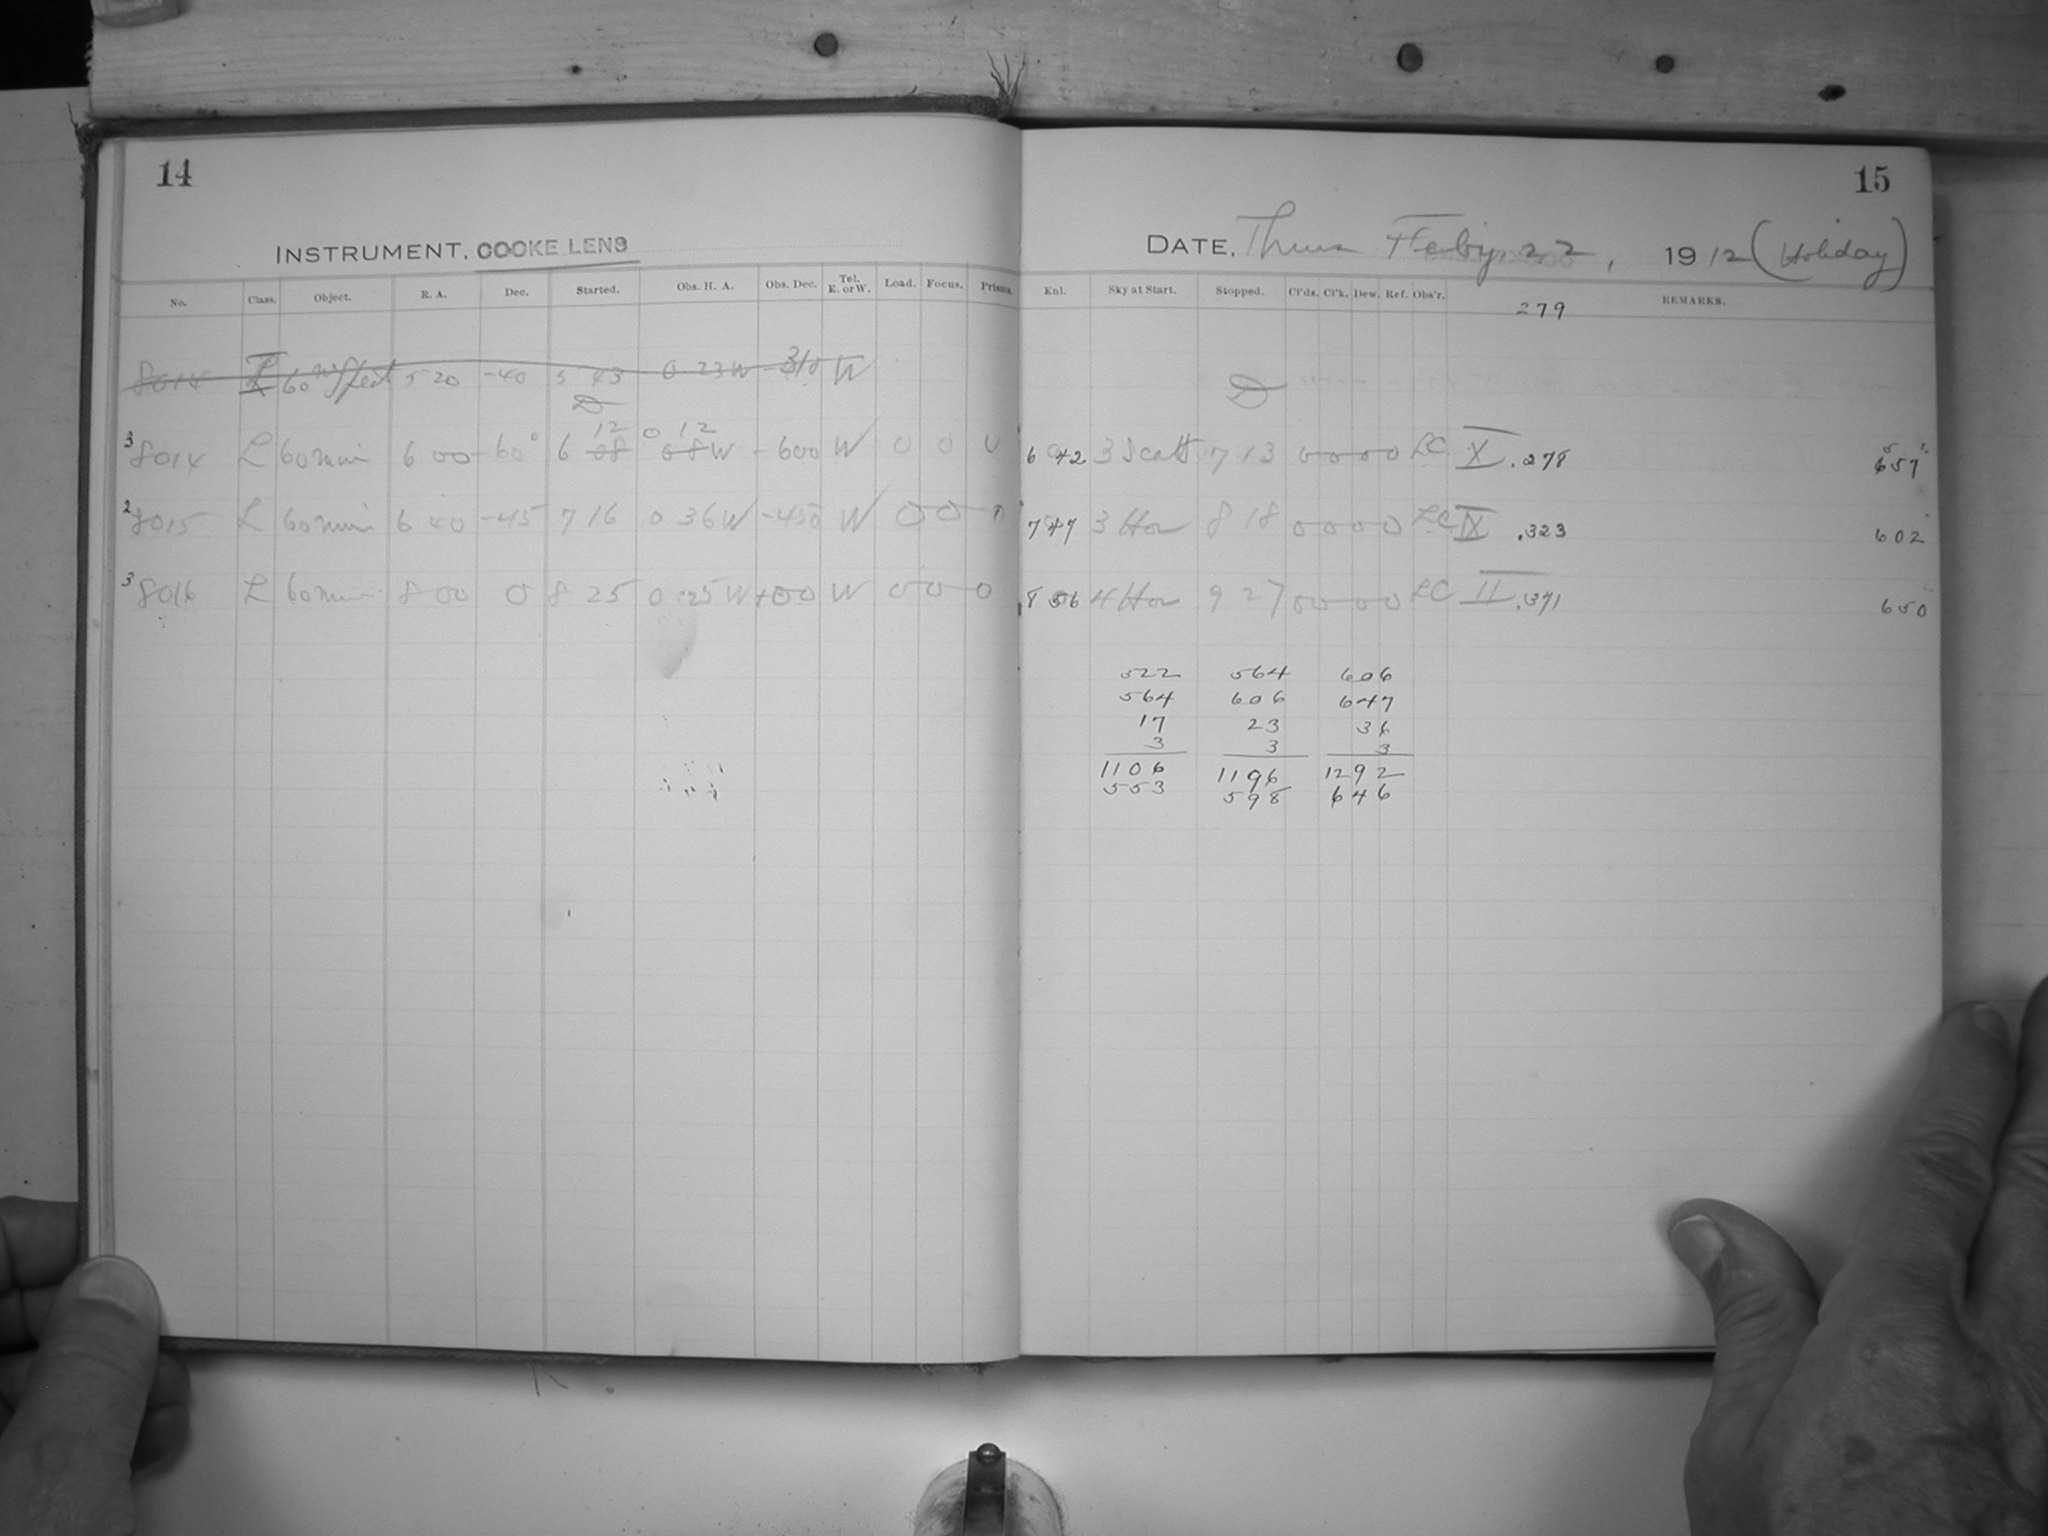 14
INSTRUMENT, COOKE LENS
No. Class. Object. R. A. Dec. Started. Obs. H. A. Obs. Dec. Tel. E. or W. Load. Focus. Prisms.
8014 60 5 20 -40 5 43 0 23 W -310 W
12 0 12
3 8014 L 60 min 6 00 -60° 6 08 08 W -600 W 0 0 0
2 8015 L 60 min 6 40 -45 7 16 0 36 W -450 W 0 0 0
3 8016 L 60 min 8 00 0 8 25 0 25 W +00 W 0 0 0
15
DATE, Thurs Feby. 22, 1912 (Holiday)
Enl. Sky at Start. Stopped. Cl'ds. Cl'k. Dew. Ref. Obs'r. REMARKS.
279
6 42 3 Scatt 7 13 0 0 0 0 LC X .278 657
7 47 3 Hor 8 18 0 0 0 0 LC IX .323 602
8 56 4 Hor 9 27 0 0 0 0 LC II .371 650
522 564 606
564 606 647
17 23 36
3 3 3
1106 1196 1292
553 598 646